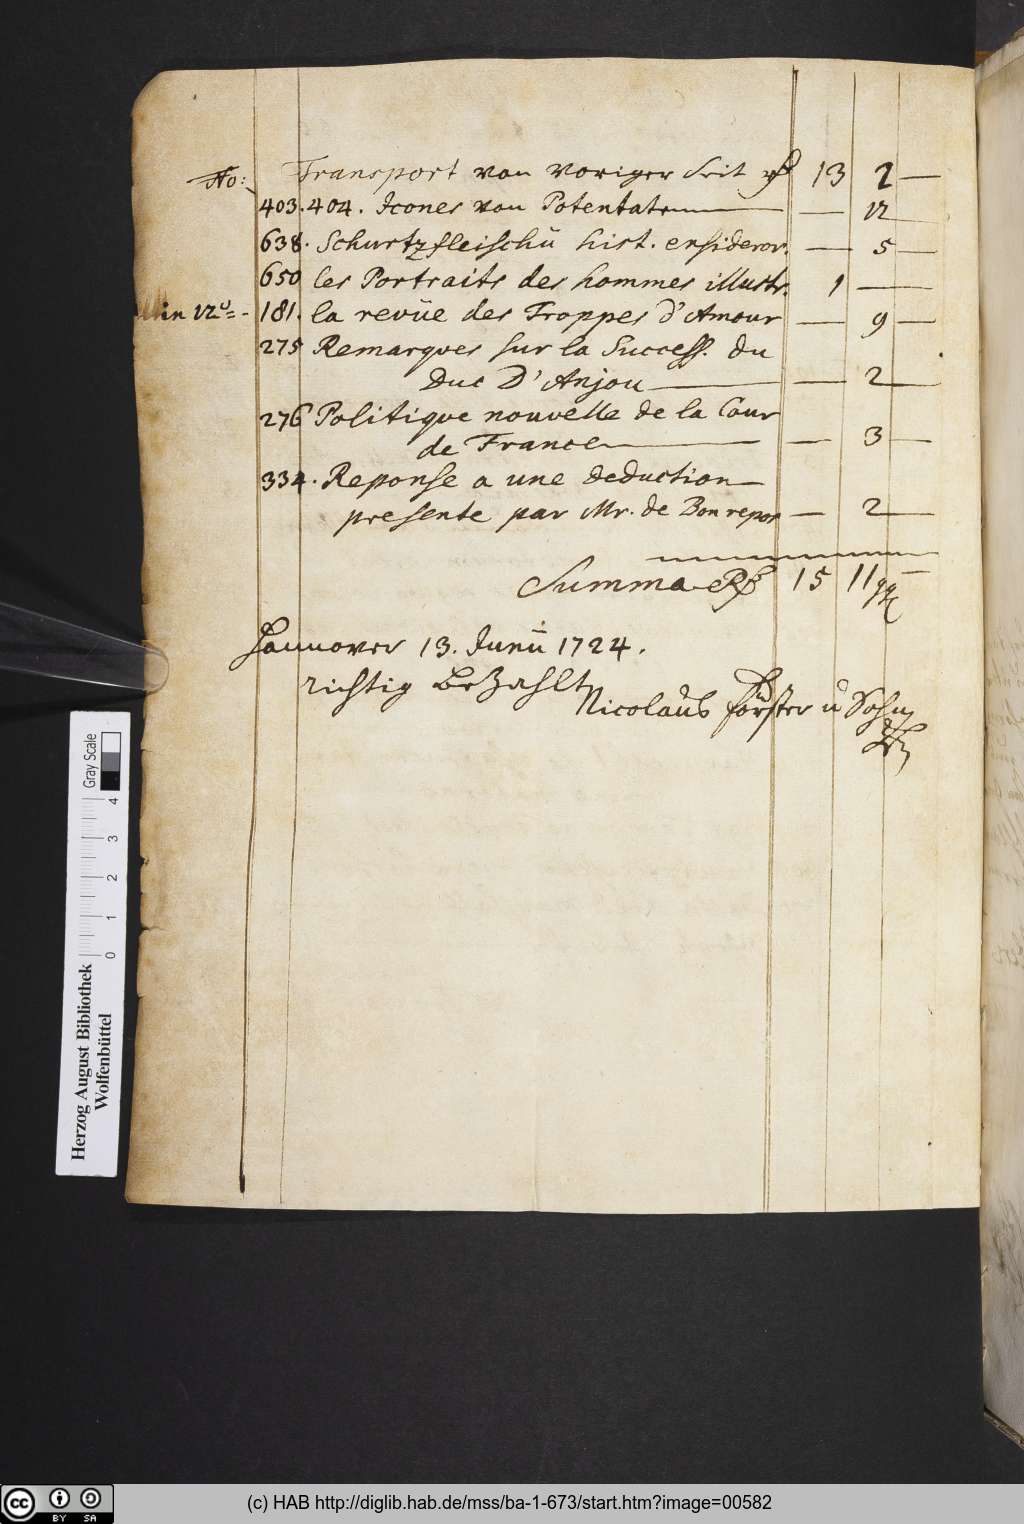 No: Transport von voriger Seit rthl 13 2 —
403. 404. Icones von Potentaten — — 12 —
638. Schurtzfleischii hist. ensideror. — 5 —
650 les Portraits des hommes illustr. 1 —
in 12° = - 181. la revüe des Troppes d'Amour — 9 —
275 Remarques sur la Success. du
Duc D'Anjou — — 2 —
276 Politique nouvelle de la Cour
de France — — 3 —
334. Reponse a une deduction
presente par Mr. de Bonrepos — 2 —
Summa Rthl 15 11 ggl
Hannover 13. Junii 1724.
richtig bezahlt
Nicolaus Förster u Sohn
Herzog August Bibliothek
Wolfenbüttel
0 1 2 3 4
Gray Scale
cc BY SA
(c) HAB http://diglib.hab.de/mss/ba-1-673/start.htm?image=00582